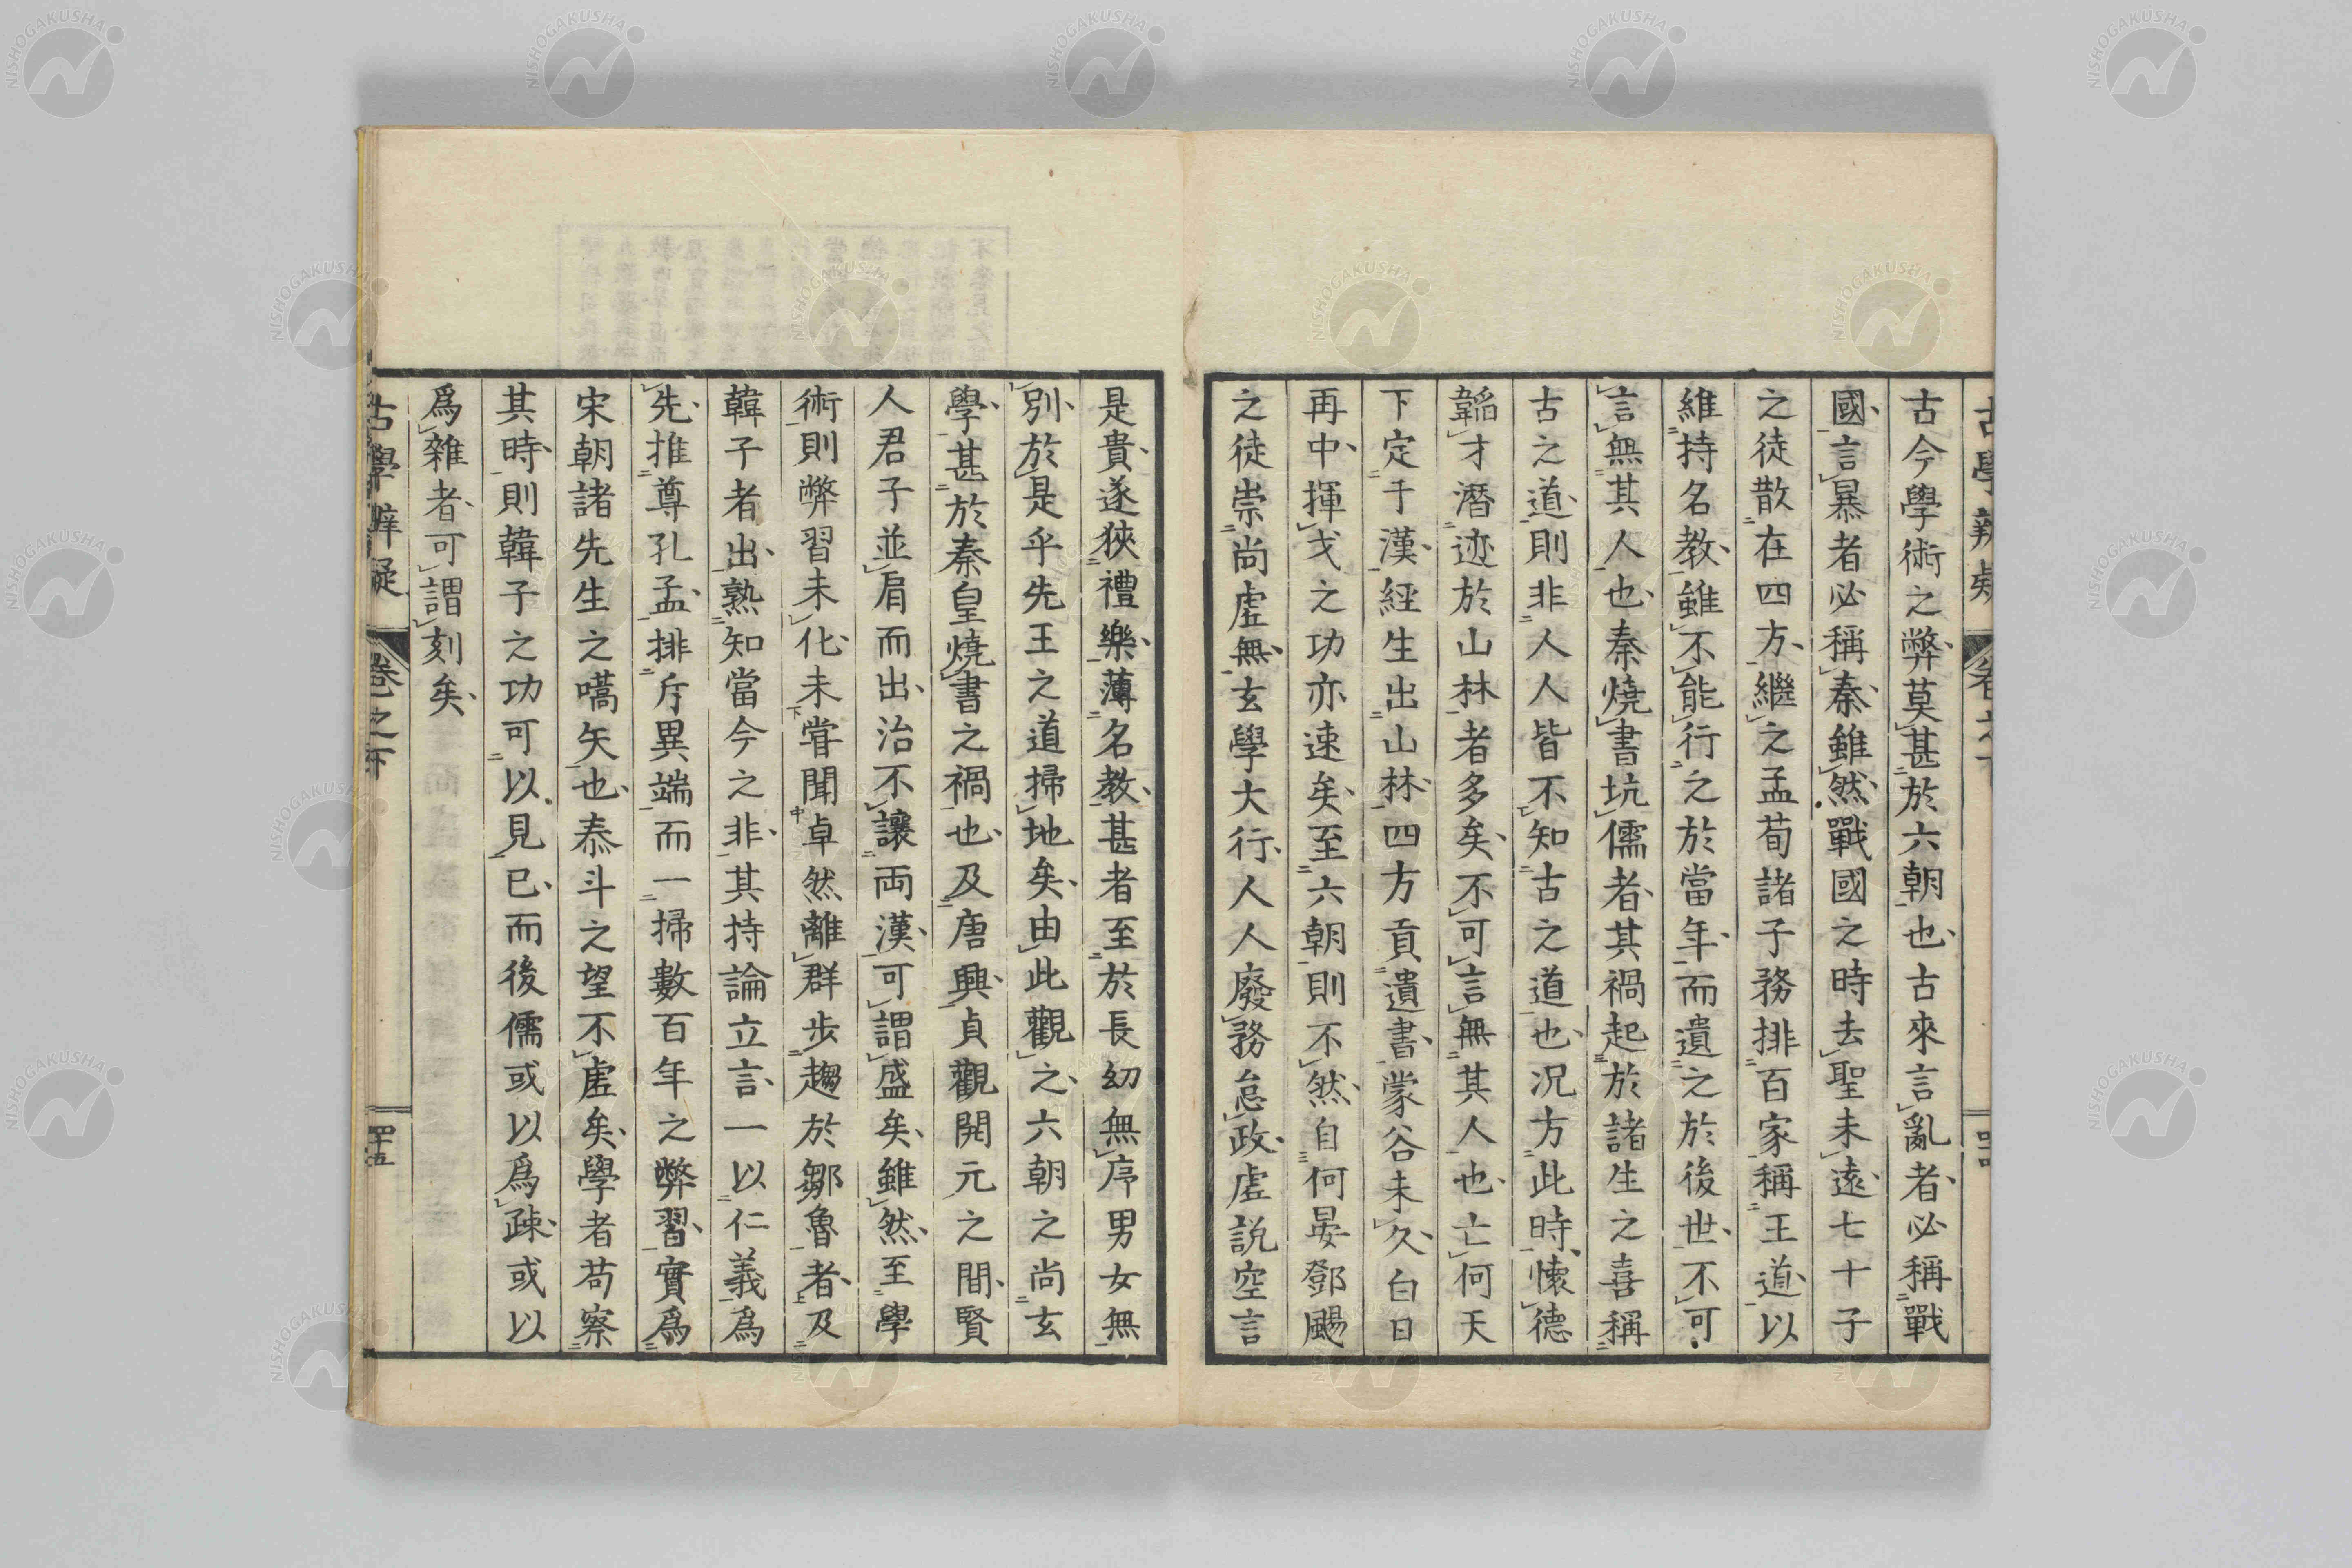 古今學術之弊莫甚於六朝也古來言亂者必稱戰
國言暴者必稱秦雖然戰國之時去聖未遠七十子
之徒散在四方繼之孟荀諸子務排百家稱王道以
維持名教雖不能行之於當年而遺之於後世不可
言無其人也秦燒書坑儒者其禍起於諸生之喜稱
古之道則非人人皆不知古之道也况方此時懷德
韜才潛迹於山林者多矣不可言無其人也亡何天
下定于漢經生出山林四方貢遺書蒙谷未久白日
再中揮戈之功亦速矣至六朝則不然自何晏鄧颺
之徒崇尚虛無玄學大行人人廢務怠政虛説空言
是貴遂狹禮樂薄名教甚者至於長幼無序男女無
別於是乎先王之道掃地矣由此觀之六朝之尚玄
學甚於秦皇燒書之禍也及唐興貞觀開元之間賢
人君子並肩而出治不讓両漢可謂盛矣雖然至學
術則弊習未化未嘗聞卓然離群步趨於鄒魯者及
韓子者出熟知當今之非其持論立言一以仁義爲
先推尊孔孟排斥異端而一掃數百年之弊習實爲
宋朝諸先生之嚆矢也泰斗之望不虛矣學者苟察
其時則韓子之功可以見已而後儒或以爲疎或以
爲雜者可謂刻矣
古學辨疑
卷之下
四十五
NISHOGAKUSHA